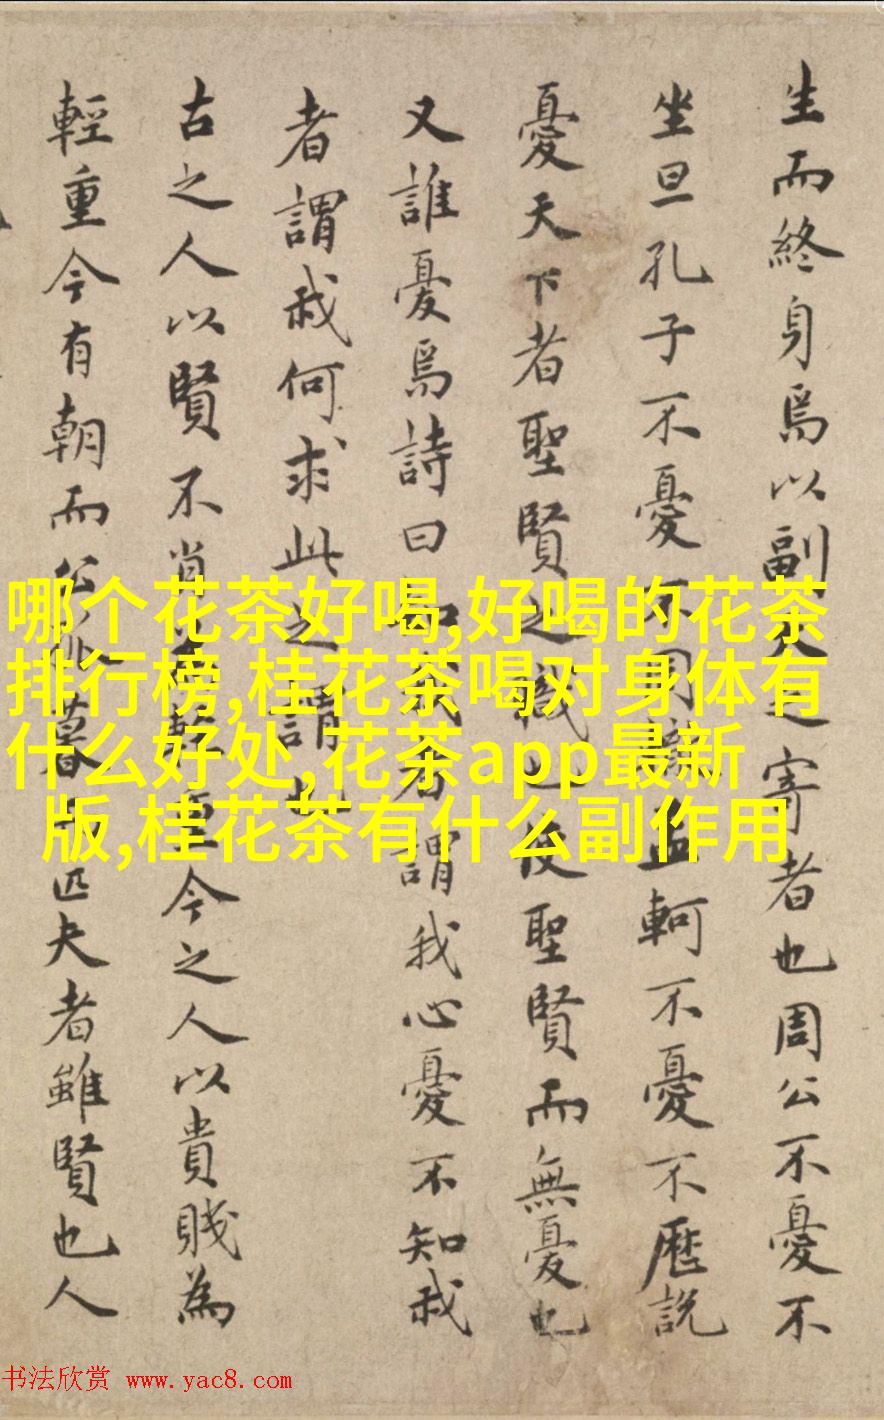 生而終身焉以副天之寄者也周公不憂不
坐旦孔子不憂不周孟軻不憂不歷說
憂天下者聖賢之職也使聖賢而無憂也
又誰憂焉詩曰知我者謂我心憂不知我
者謂我何求此之謂也
古之人以賢不肖為輕重今之人以貴賤為
輕重今有朝而公侯暮而匹夫者雖賢也人
哪个花茶好喝,好喝的花茶
排行榜,桂花茶喝对身体有
什么好处,花茶app最新
版,桂花茶有什么副作用
书法欣赏 www.yac8.com